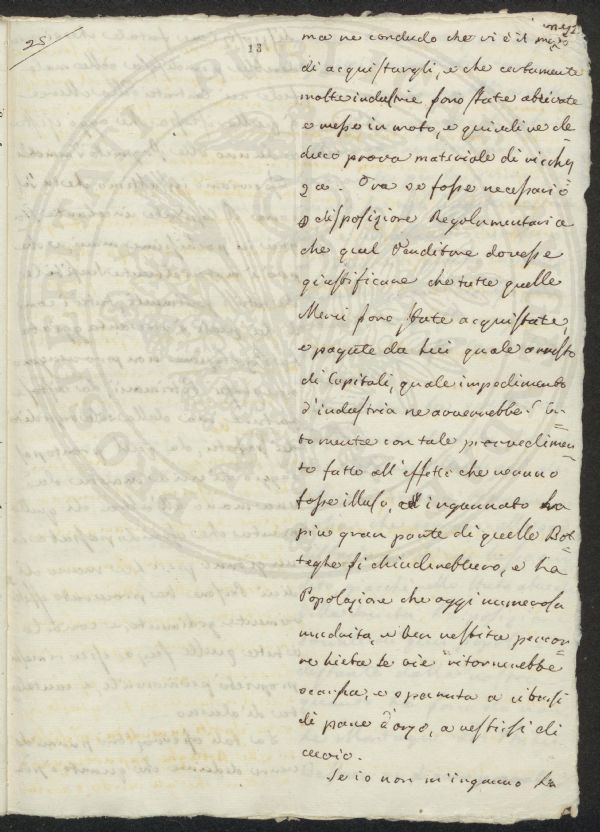 25
13
ma ne concludo che vi è il mezzo
di acquistargli, e che certamente
molte industrie sono state attivate
e messe in moto, e quindi ne de-
duco prova materiale di ricchez
za. Ora se fosse necessario
disposizione Regolamentaria
che quel Venditore dovesse
giustificare che tutte quelle
Merci sono state acquistate,
e pagate da lui quale arresto
di Capitali, quale impedimento
d'industria ne avverrebbe? Cer-
tamente con tale provvedimen-
to fatto all'effetto che veruno
fosse illuso, ed ingannato la
più gran parte di quelle Bot-
teghe si chiuderebbero, e la
Popolazione che oggi numerosa
nudrita, e ben vestita percor-
re lieta le vie ritornerebbe
scarsa, e sparuta a cibarsi
di pane d'orzo, a vestirsi di
cuoio.
Se io non m'inganno la